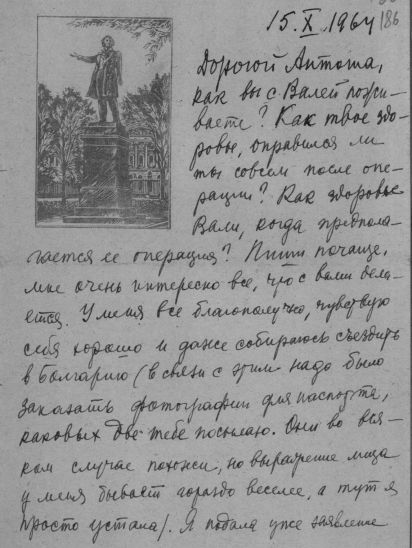 15.X.1964
186
Дорогой Антоша,
как вы с Валей пожи-
ваете? Как твое здо-
ровье, оправился ли
ты совсем после опе-
рации? Как здоровье
Вали, когда предпола-
гается ее операция? Пиши почаще,
мне очень интересно все, что с вами дела-
ется. У меня все благополучно, чувствую
себя хорошо и даже собираюсь съездить
в Болгарию (в связи с этим надо было
заказать фотографии для паспорта,
каковых две тебе посылаю. Они во вся-
ком случае похожи, но выражение лица
у меня бывает гораздо веселее, а тут я
просто устала). Я подала уже заявление